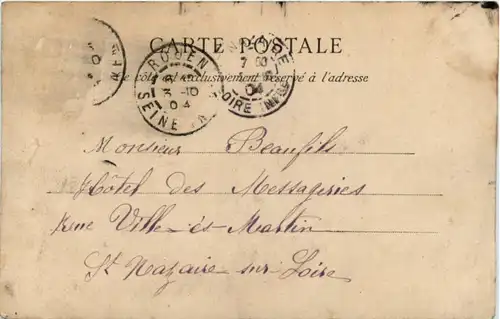 CARTE POSTALE
Ce côté est exclusivement réservé à l'adresse
ROUEN
3-10
04
SEINE
7
04
LOIRE INFRE
Monsieur Beaufils
Hôtel des Messageries
Rue Ville-ès-Martin
St Nazaire sur Loire